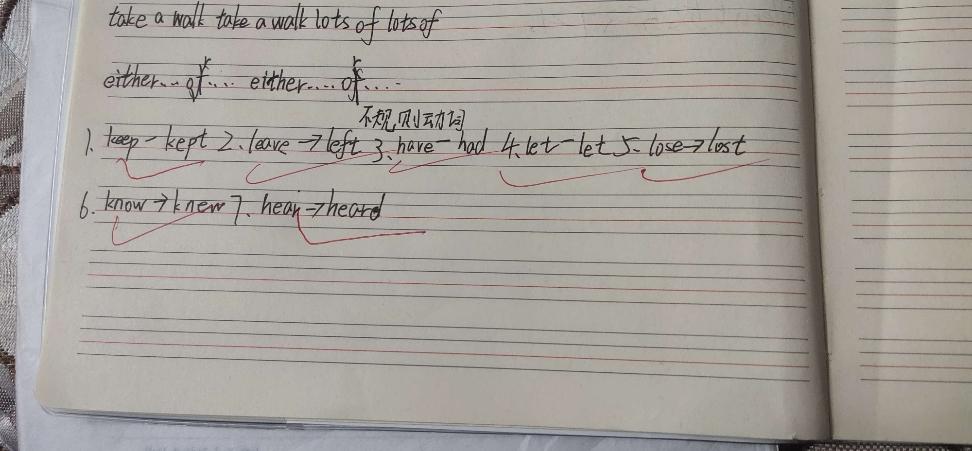 take a walk take a walk lots of lots of
either... or.... either.... or....
不规则动词
1. keep-kept 2. leave→left 3. have-had 4. let-let 5. lose→lost
6. know→knew 7. hear→heard